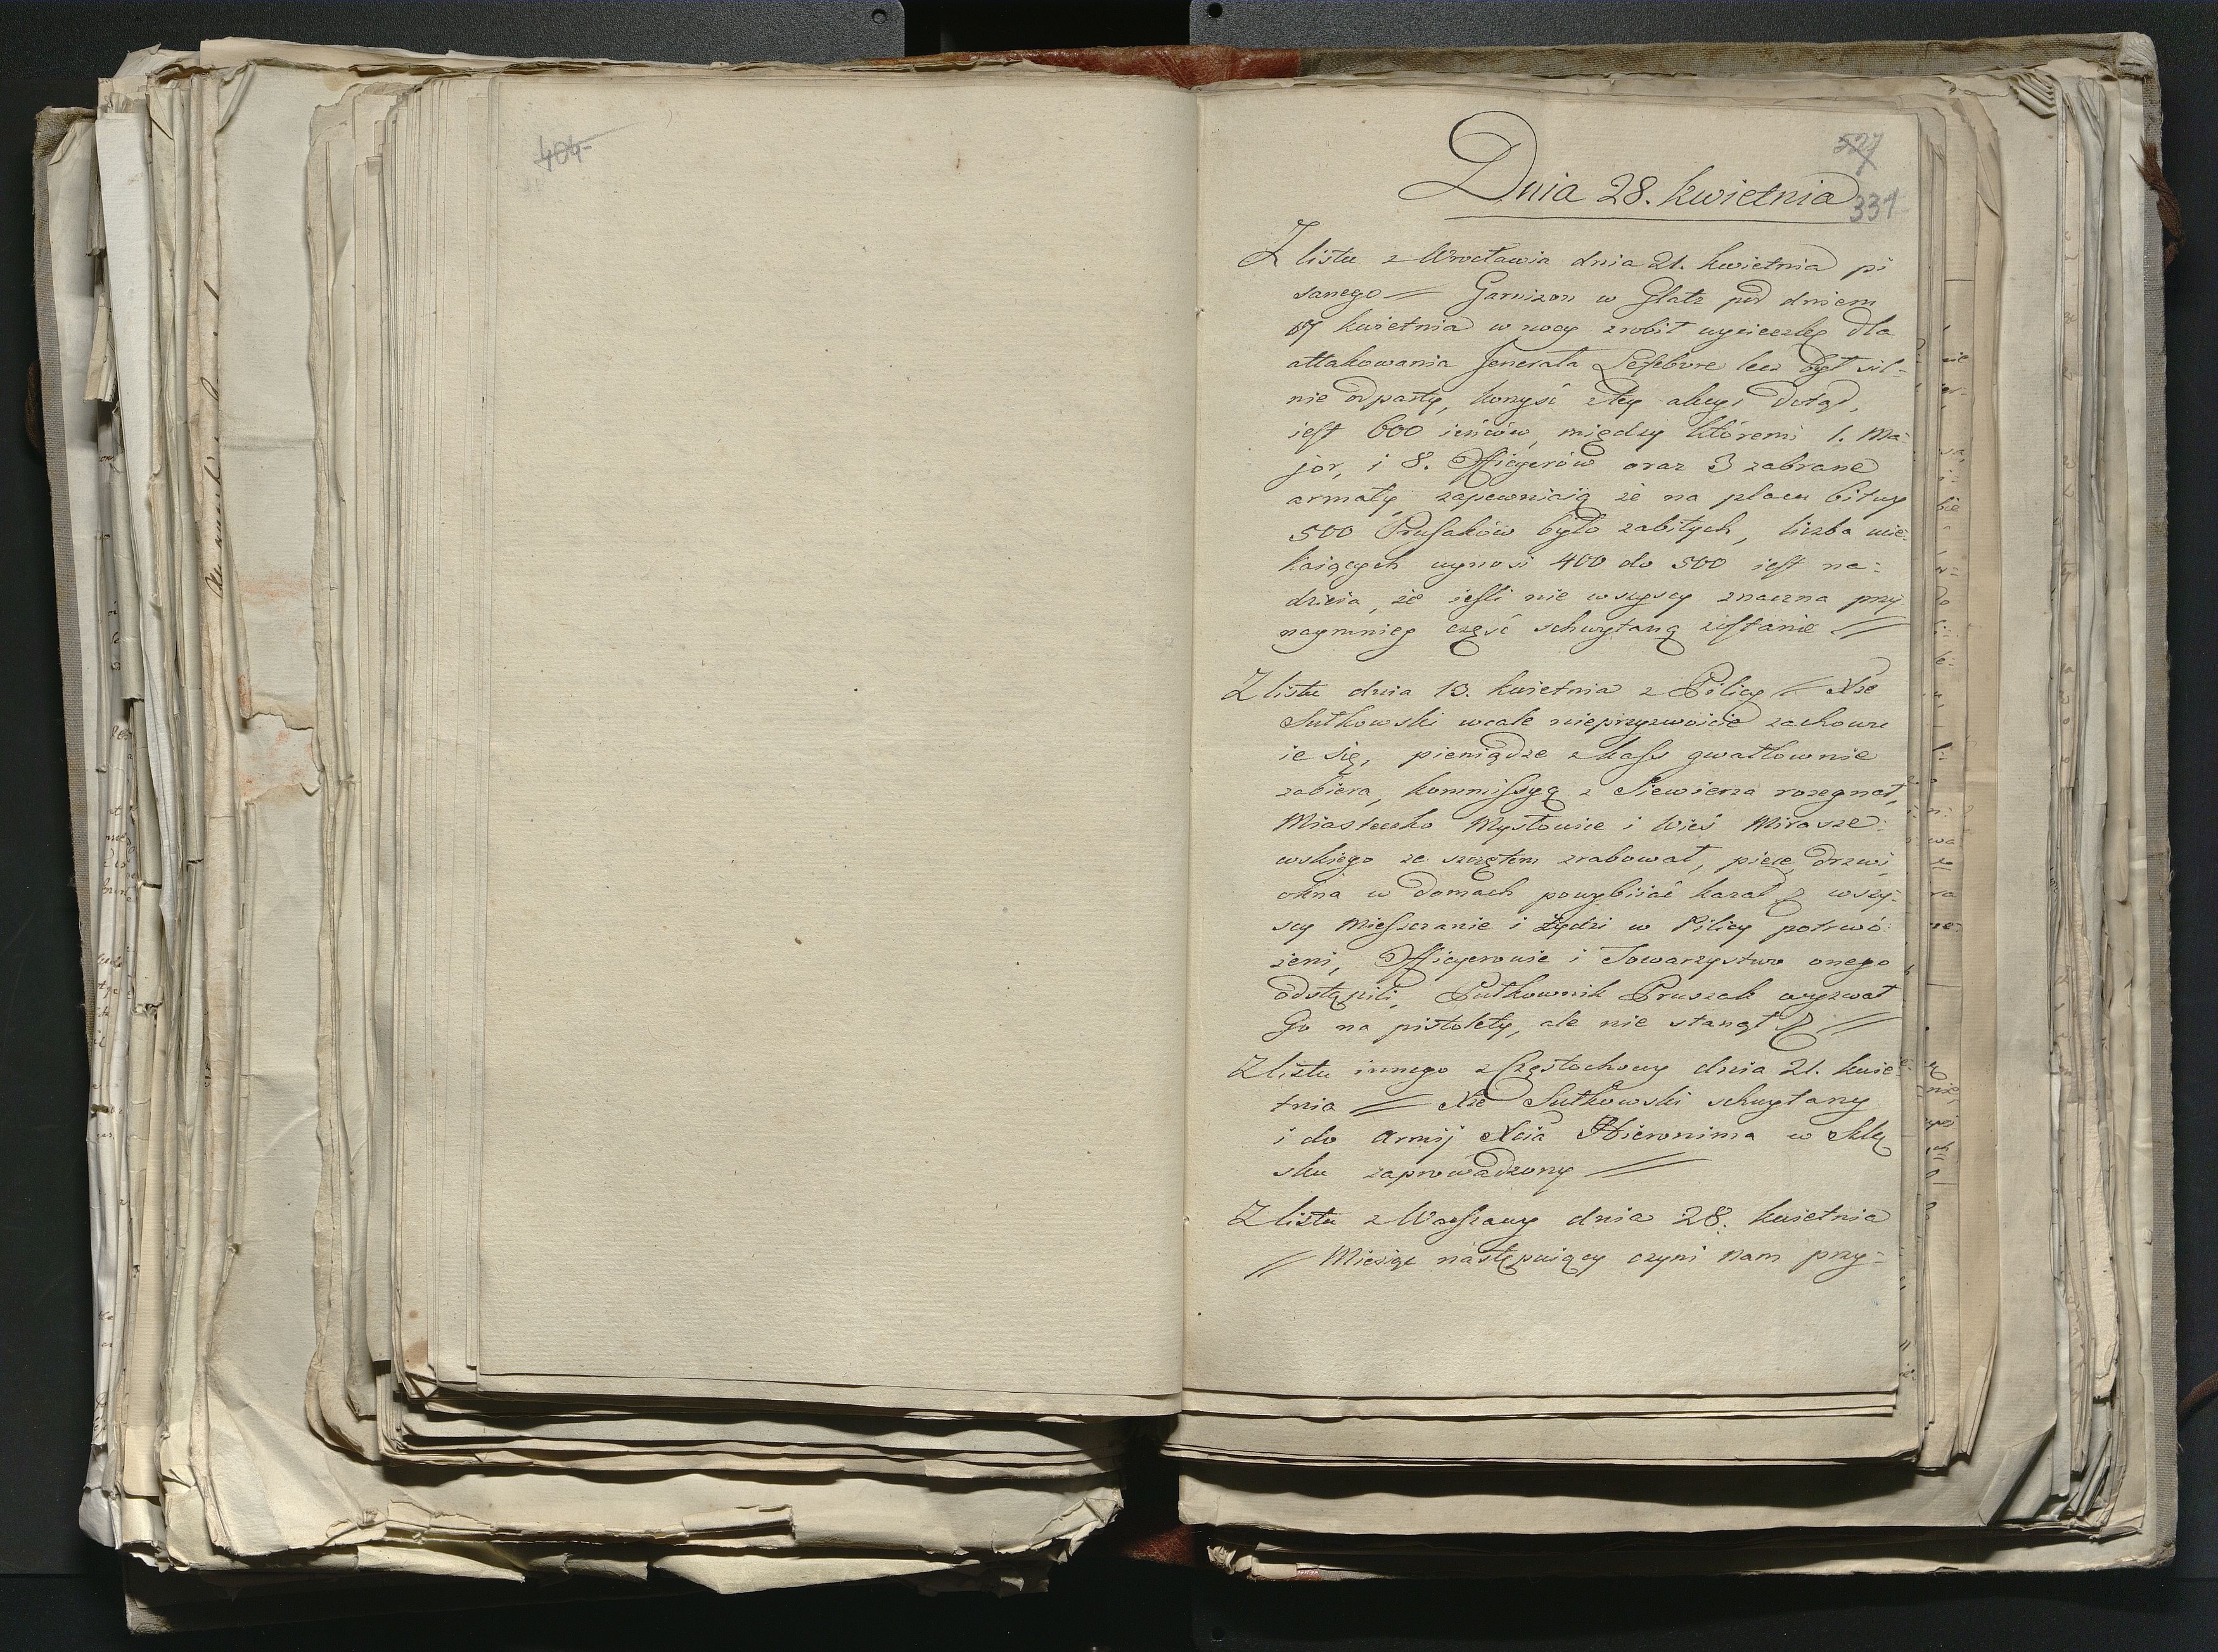 404
527
Dnia 28. kwietnia
331
Z listu z Wrocławia dnia 21. kwietnia pi
sanego = Garnizon w Glatz pod dniem
17 kwietnia w nocy zrobił wycieczkę dla
attakowania Jenerała Lefebvre lecz był sil=
nie odparty, korzyść z tey akcyi dotąd,
iest 600 ieńców, między któremi 1. Ma=
jor, i 8. Officyerów oraz 3 zabrane
armaty, zapewniaią że na placu bitwy
500 Prusaków było zabitych, liczba ucie=
kaiących wynosi 400 do 500 iest na=
dzieia, że iesli nie wszyscy znaczna przy
naymniey część schwytaną zostanie //
Z listu dnia 13. kwietnia z Pilicy // Xże
Sułkowski wcale nieprzyzwoicie zachowu
ie się, pieniądze z kass gwałtownie
zabiera, kommissyą z Siewierza rozegnał,
Miasteczko Mysłowice i Wieś Mirosze=
wskiego ze szczętem zrabował, piece, drzwi
okna w domach powybiiać kazał wszy=
scy Mieszczanie i Żydzi w Pilicy potrwo=
żeni, Officyerowie i Towarzystwo onego
odstąpili, Pułkownik Pruszak wyzwał
Go na pistolety, ale nie stanął //
Z listu innego z Częstochowy dnia 21. kwie=
tnia // Xże Sułkowski schwytany
i do Armij Xcia Hieronima w Szlą
sku zaprowadzony //
Z listu z Warszawy dnia 28. kwietnia
// Miesiąc następuiący czyni nam przy=